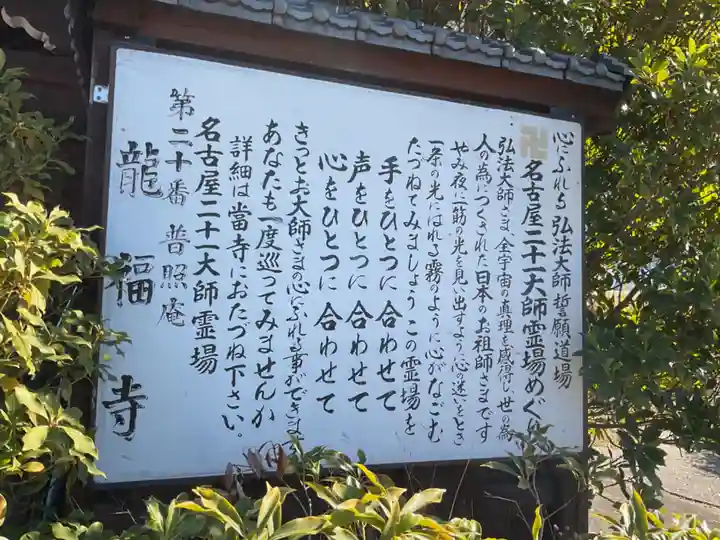 心にふれる 弘法大師 誓願道場
卍 名古屋二十一大師霊場めぐり
弘法大師さま、全宇宙の真理を感得し、世の為
人の為につくされた日本のお祖師さまです
やみ夜に一筋の光を見い出すように心の迷いをとき
一条の光にはれる霧のように心がなごむ
たづねてみましょうこの霊場を
手をひとつに合わせて
声をひとつに合わせて
心をひとつに合わせて
きっとお大師さまの心にふれる事ができます
あなたも一度巡ってみませんか
詳細は當寺におたづね下さい。
名古屋二十一大師霊場
第二十番 普照庵
龍福寺